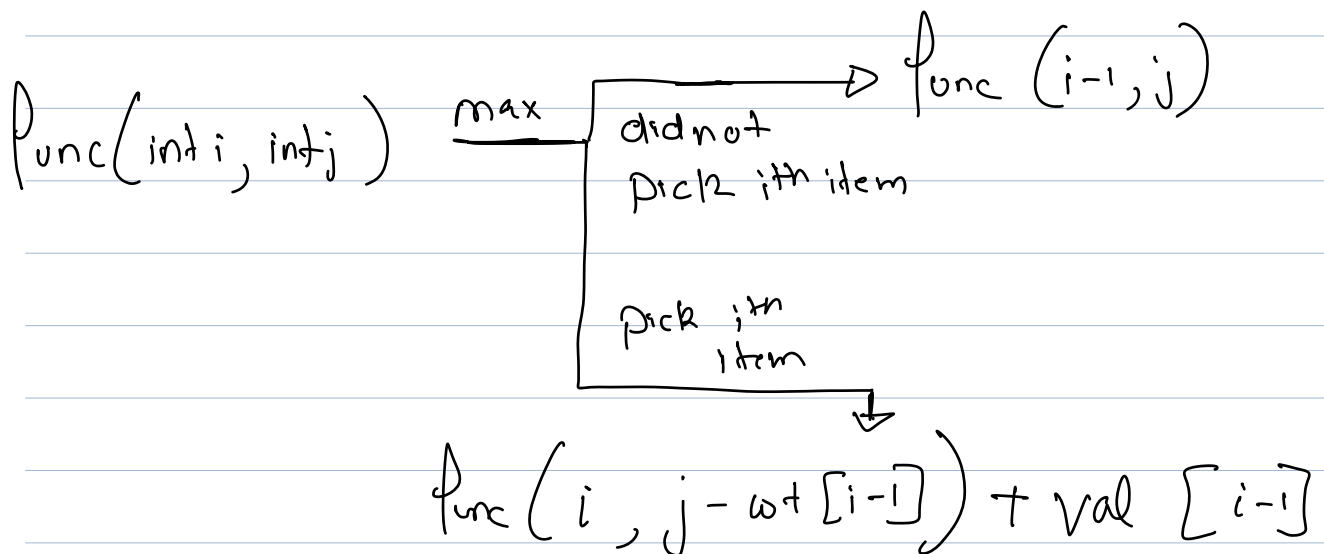 func(int i, int j)
max
func (i-1, j)
did not
pick ith item
pick ith
item
func( i , j - wt [i-1] ) + val [i-1]